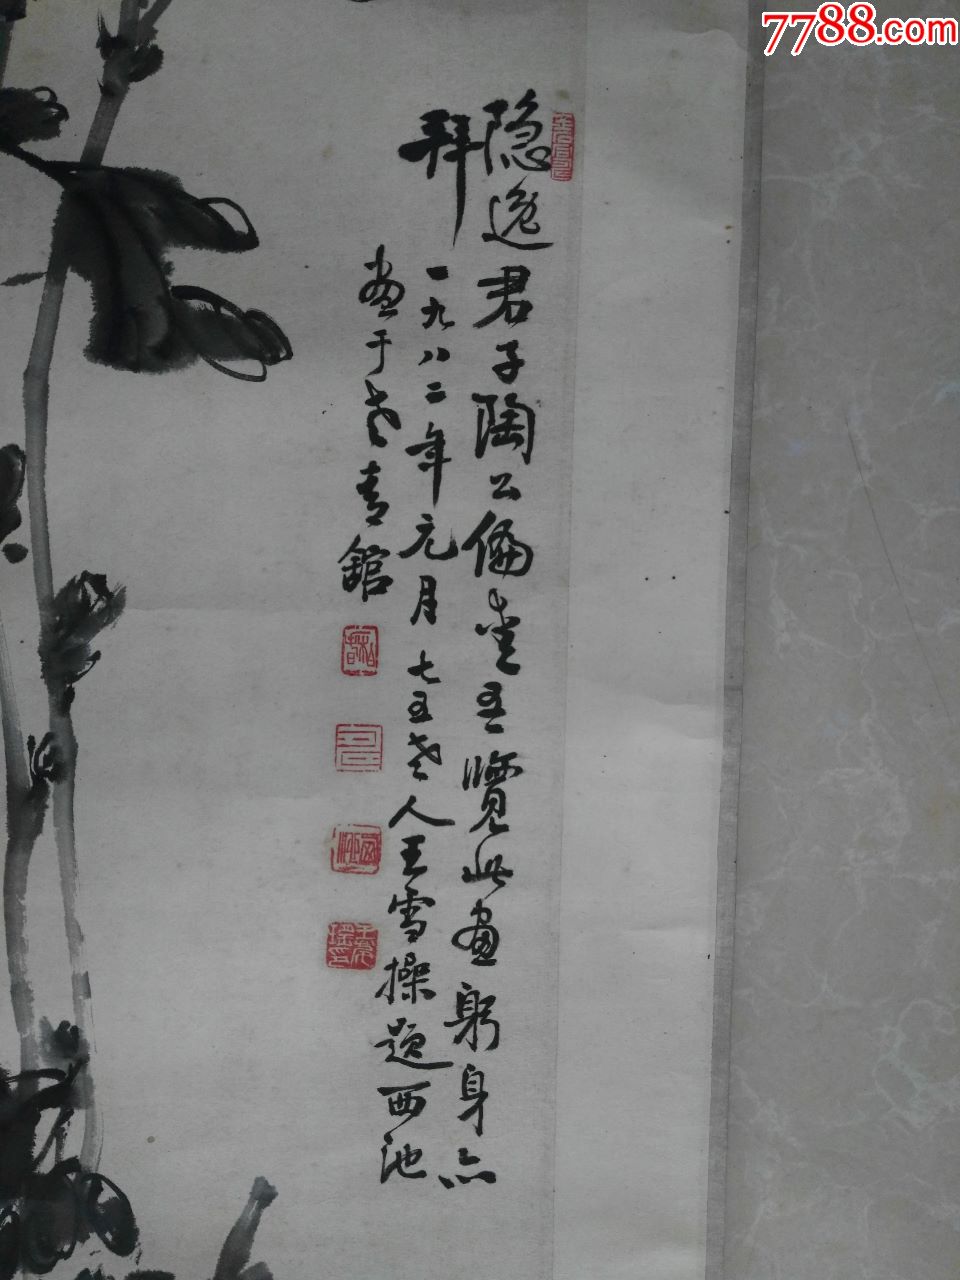 7788.com
隐逸君子陶公偏爱吾览此画躬身亦
拜
一九八二年元月七五老人王雪操题西池
画于老青馆